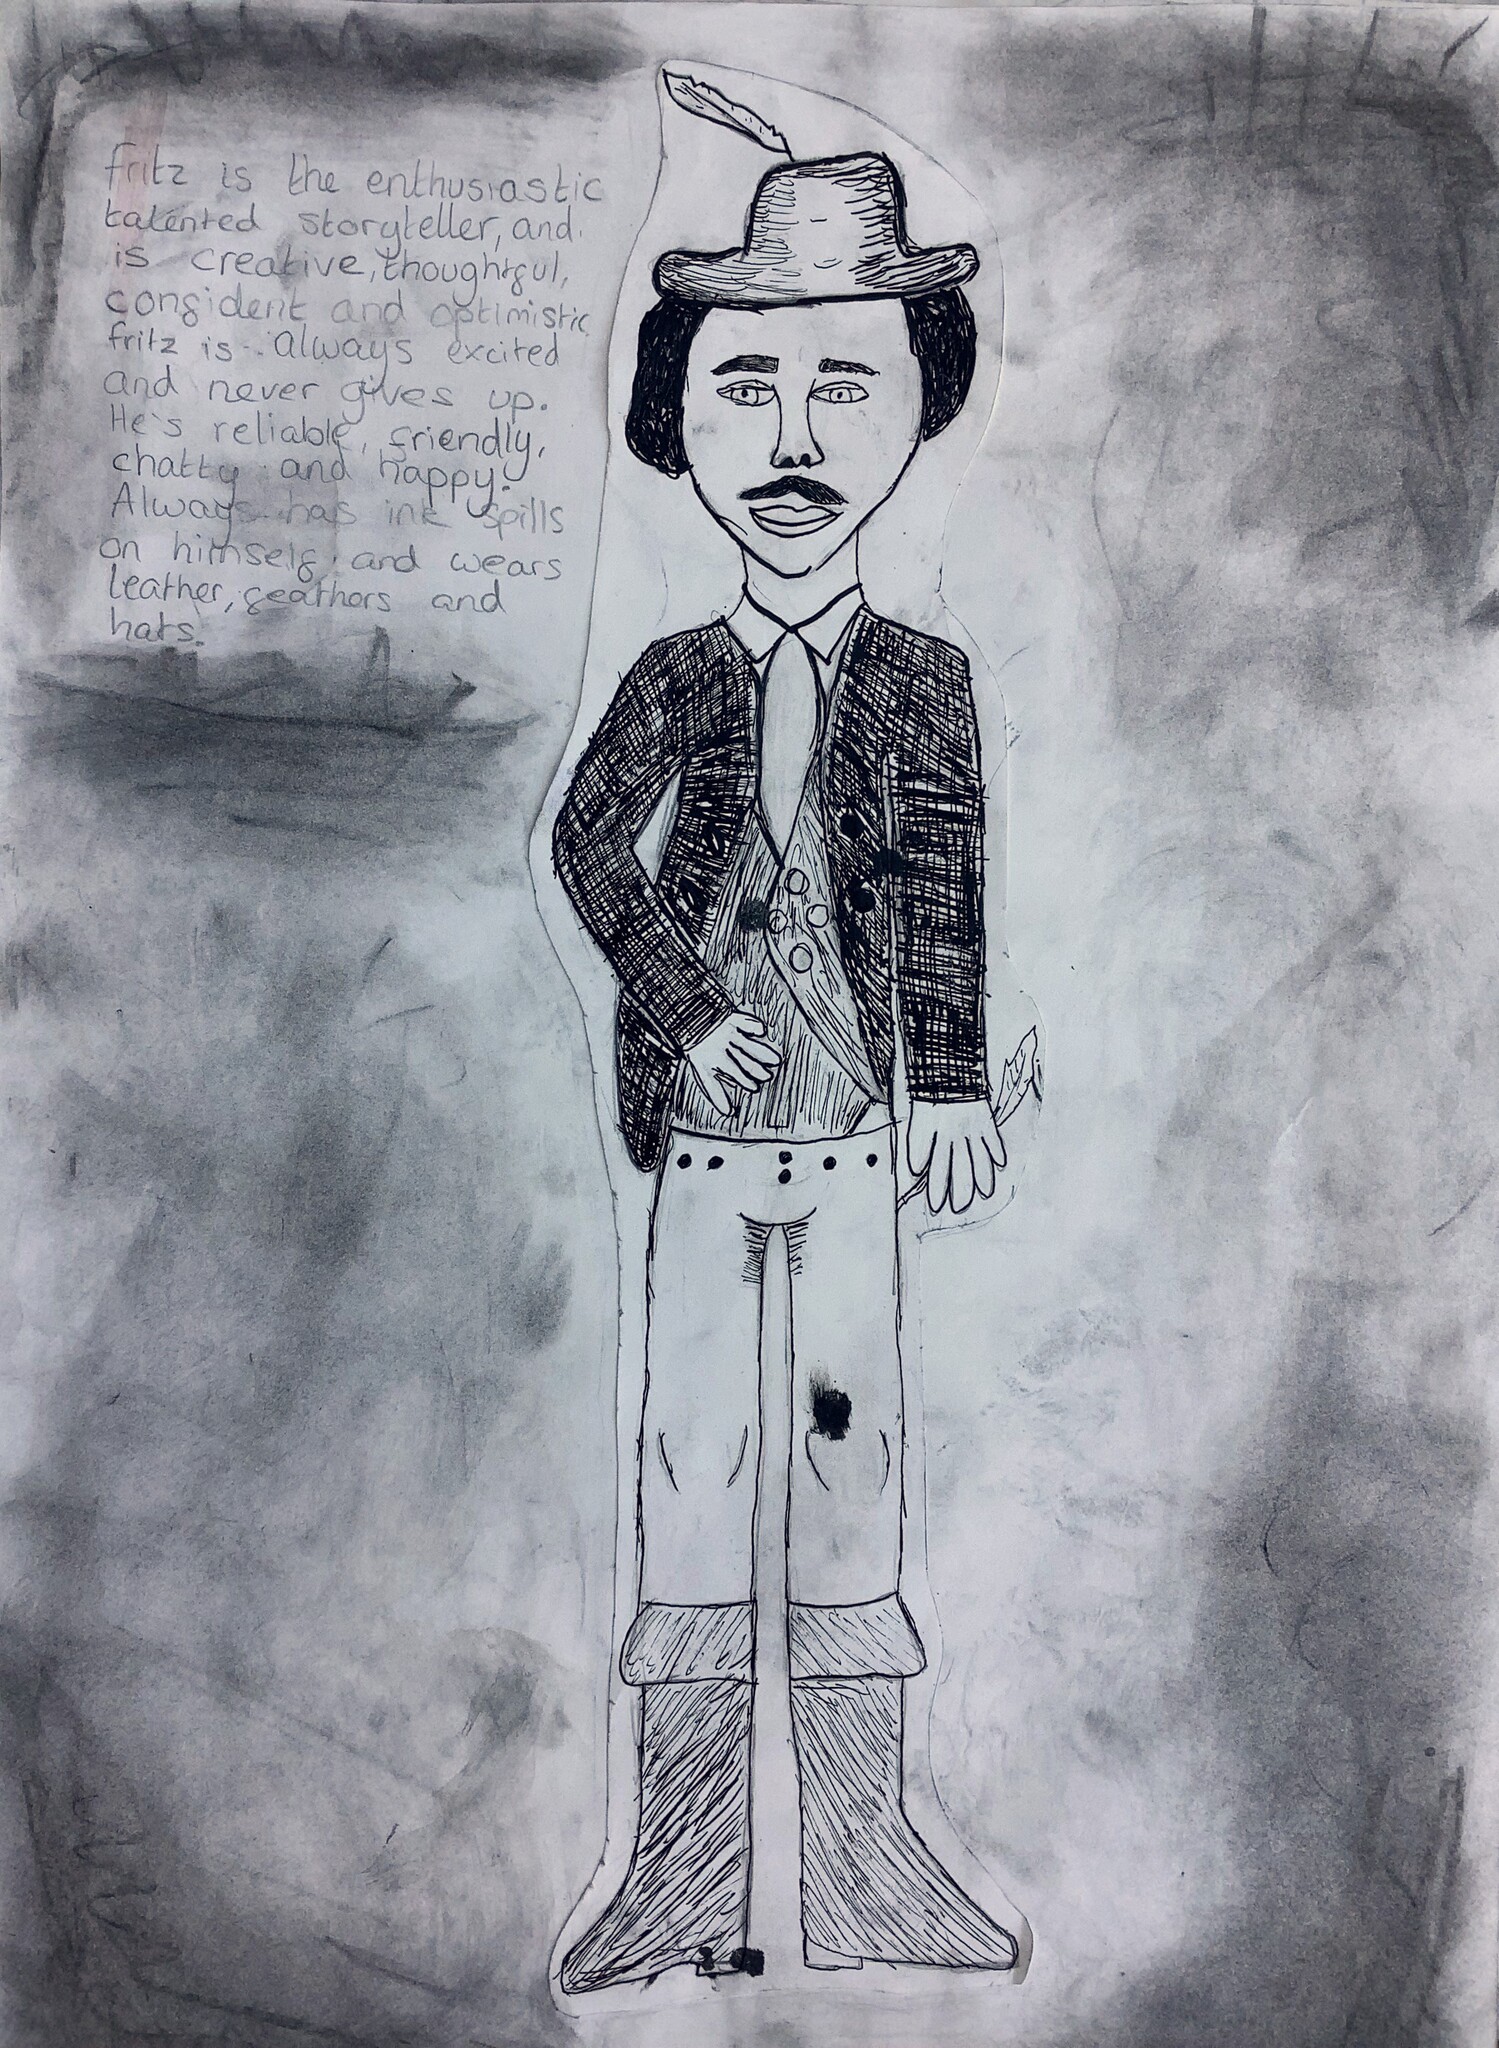 fritz is the enthusiastic
talented storyteller, and
is creative, thoughtful,
confident and optimistic
fritz is always excited
and never gives up.
He's reliable, friendly,
chatty and happy.
Always has ink spills
on himself and wears
leather, feathers and
hats.